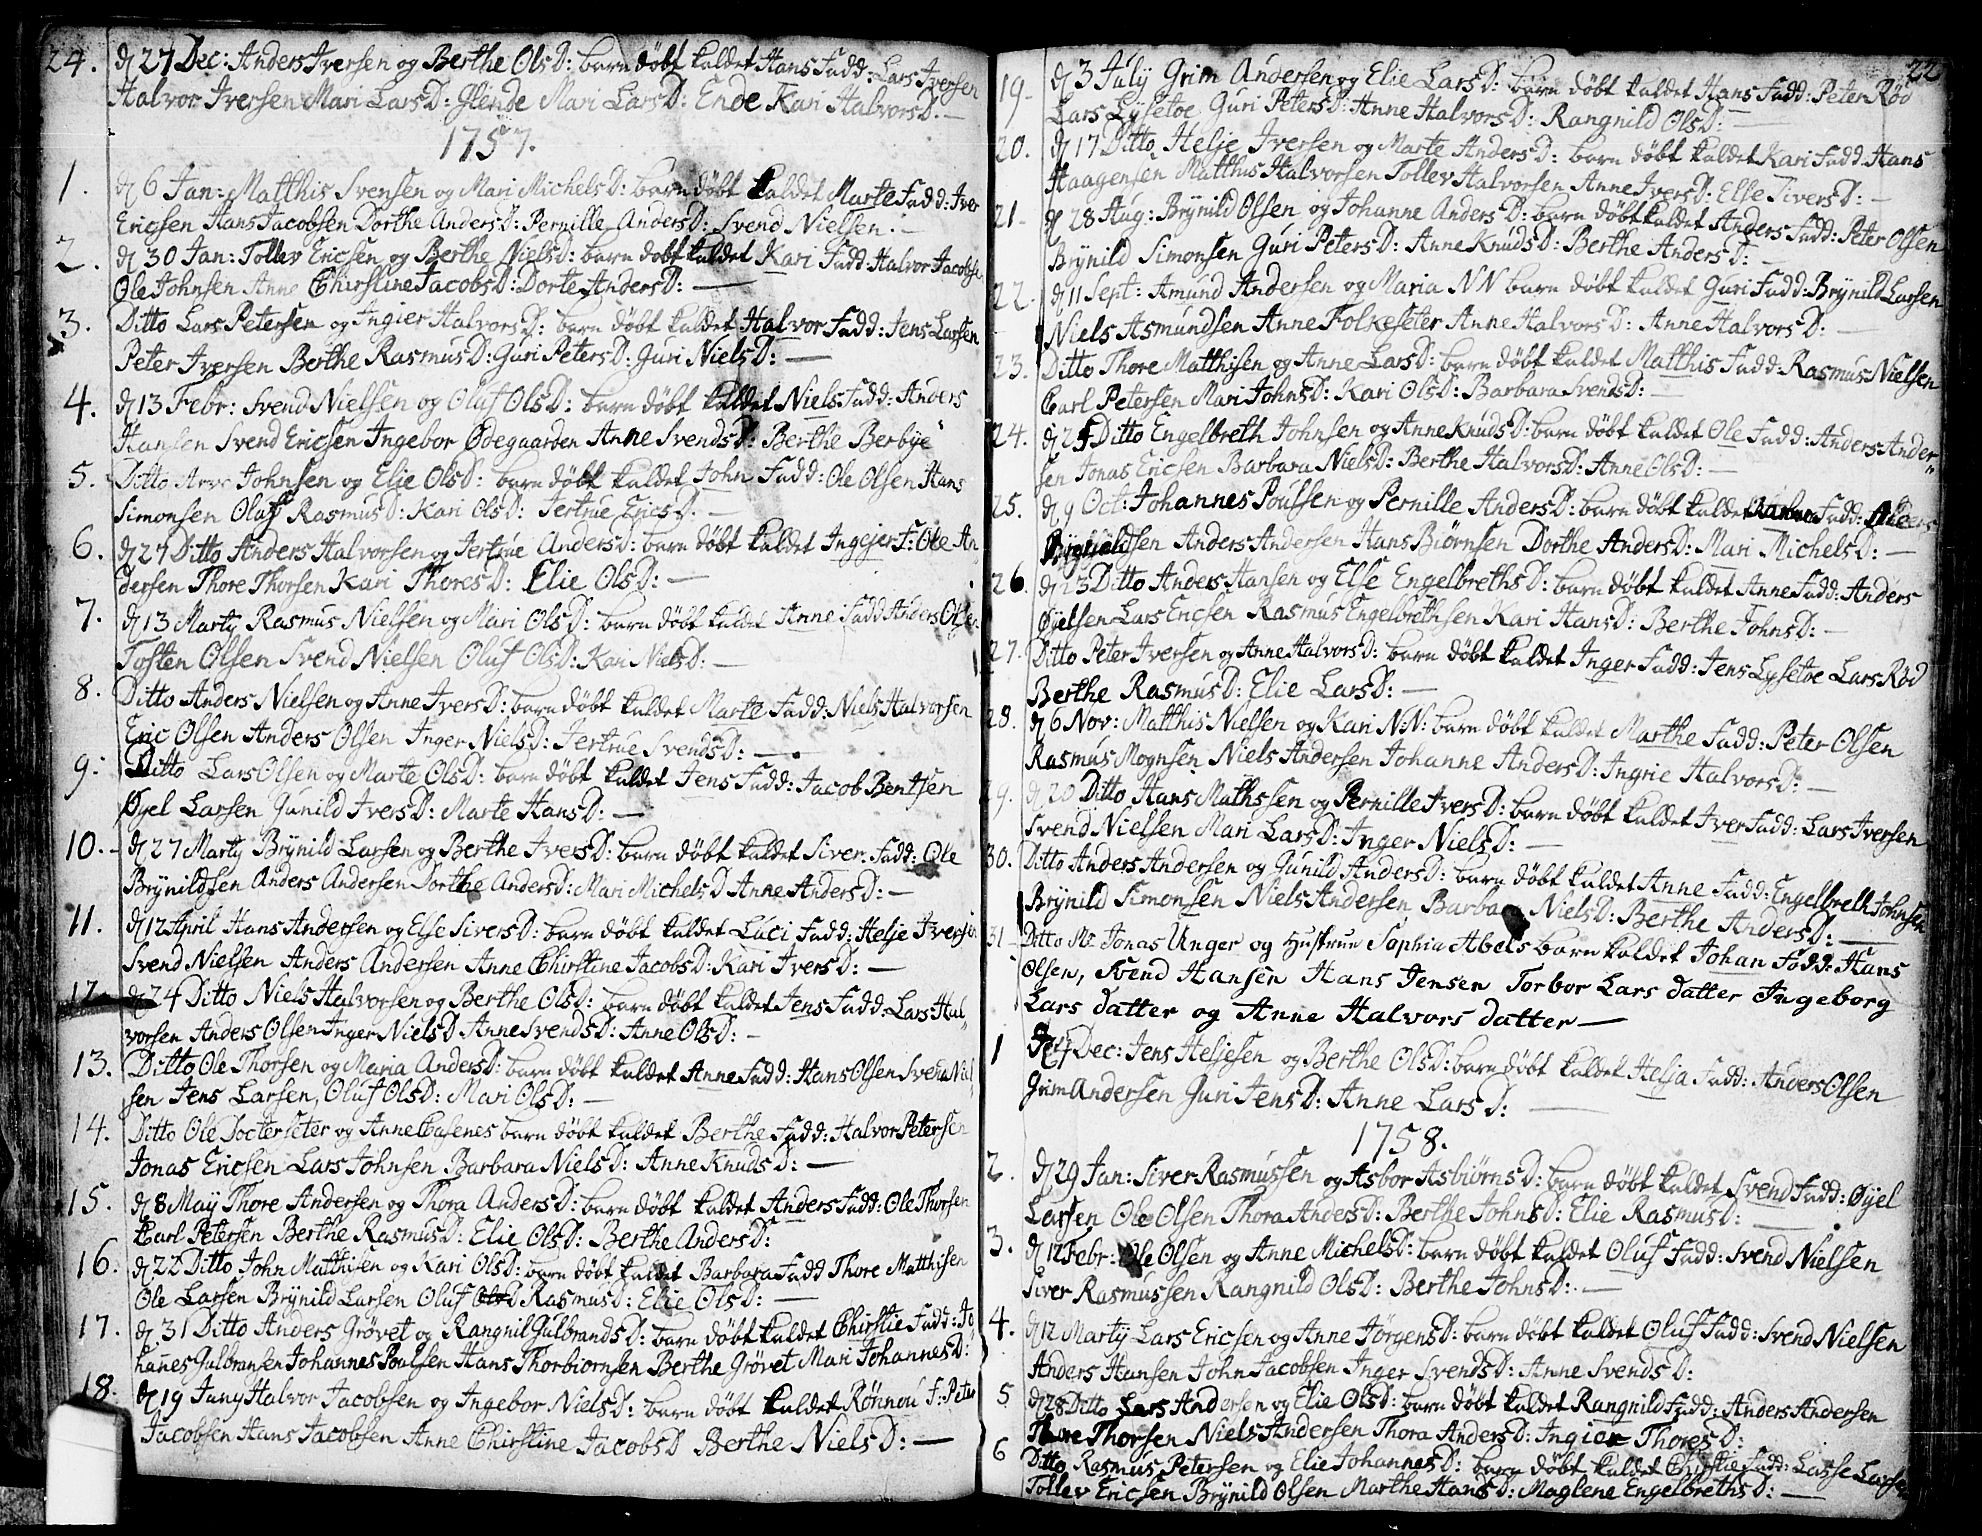 24. d 27 Dec: Anders Iversen og Berthe OlsD: barn döbt kaldet Hans Fadd: Lars Iversen
Halvor Iversen Mari LarsD: Glende Mari LarsD: Ende Kari HalvorsD. —
1757.
1. d 6 Jan: Matthis Svensen og Mari MichelsD: barn döbt kaldet Marte Fadd: Iver
Ericsen Hans Jacobsen Dorthe AndersD: Pernille AndersD: Svend Nielsen. —
2. d 30 Jan: Tollev Ericsen og Berthe NielsD: barn döbt kaldet Kari Fadd: Halvor Jacobse
Ole Johnsen Anne Chirstine JacobsD: Dorte AndersD: —
3. Ditto Lars Petersen og Ingier HalvorsD: barn döbt kaldet Halvor Fadd: Jens Larsen
Peter Iversen Berthe RasmusD: Guri PetersD: Guri NielsD: —
4. d 13 Febr: Svend Nielsen og Oluf OlsD: barn döbt kaldet Niels Fadd: Anders
Hansen Svend Ericsen Ingebor Ödegaarden Anne SvendsD: Berthe Berbye
5. Ditto Arve Johnsen og Elie OlsD: barn döbt kaldet John Fadd: Ole Olsen Hans
Simonsen Oluf RasmusD: Kari OlsD: Jertrue EricsD. —
6. d 27 Ditto Anders Halvorsen og Jertrue AndersD: barn döbt kaldet Ingejer F: Ole An
dersen Thore Thorsen Kari ThoresD: Elie OlsD: —
7. d 13 Marty Rasmus Nielsen og Mari OlsD: barn döbt kaldet Anne Fadd Anders Olsen
Tosten Olsen Svend Nielsen Oluf OlsD: Kari NielsD: —
8. Ditto Anders Nielsen og Anne IversD: barn döbt kaldet Marte Fadd: Niels Halvorsen
Eric Olsen Anders Olsen Inger NielsD: Jertrue SvendsD: —
9. Ditto Lars Olsen og Marte OlsD: barn döbt kaldet Jens Fadd: Jacob Bentsen
Öyel Larsen Gunild IversD: Marte HansD: —
10. d 27 Marty Brÿnild Larsen og Berthe IversD: barn döbt kaldet Siver Fadd: Ole
Brÿnildsen Anders Andersen Dorthe AndersD: Mari MichelsD Anne AndersD: —
11. d 12 April Hans Andersen og Else SiversD: barn döbt kaldet Luci Fadd: Helje Iversen
Svend Nielsen Anders Andersen Anne Chirstine JacobsD: Kari IversD: —
12. d 24 Ditto Niels Halvorsen og Berthe OlsD: barn döbt kaldet Jens Fadd: Lars Hal
vorsen Anders Olsen Inger NielsD Anne SvendsD: Anne OlsD: —
13. Ditto Ole Thorsen og Maria AndersD: barn döbt kaldet Anne Fadd: Hans Olsen Svend Niel
sen Jens Larsen, Oluf OlsD: Mari OlsD: —
14. Ditto Ole Tocterseter og Anne barn döbt kaldet Berthe Fadd: Halvor Petersen
Jonas Ericsen Lars Johnsen Barbara NielsD: Anne KnudsD: —
15. d 8 Maÿ Thore Andersen og Thora AndersD: barn döbt kaldet Anders Fadd: Ole Thorsen
Carl Petersen Berthe RasmusD: Elie OlsD: Berthe AndersD:
16. d 22 Ditto John Matthisen og Kari OlsD: barn döbt kaldet Barbara Fadd Thore Matthisen
Ole Larsen Brÿnild Larsen Oluf RasmusD: Elie OlsD: —
17. d 31 Ditto Anders Grövet og Rangnil GulbrandsD: barn döbt kaldet Chirstie Fadd: Jo
hannes Gulbransen Johannes Poulsen Hans Thorbiornsen Berthe Grövet Mari JohannesD:
18. d 19 Juny Halvor Jacobsen og Ingebor NielsD: barn döbt kaldet Rönnou F: Peter
Jacobsen Hans Jacobsen Anne Chirstine JacobsD Berthe NielsD: —
22
19. d 3 Julÿ Grim Andersen og Elie LarsD: barn döbt kaldet Hans Fadd: Peter Röd
Lars Lÿsetoe Guri PetersD: Anne HalvorsD: Rangnild OlsD: —
20. d 17 Ditto Helje Iversen og Marte AndersD: barn döbt kaldet Kari Fadd: Hans
Haagensen Matthis Halvorsen Tollev Halvorsen Anne IversD: Else SiversD: —
21. d 28 Aug: Brÿnild Olsen og Johanne AndersD: barn döbt kaldet Anders Fadd: Peter Olsen
Brÿnild Simonsen Guri PetersD: Anne KnudsD: Berthe AndersD: —
22. d 11 Sept: Amund Andersen og Maria NN barn döbt kaldet Guri Fadd: Brÿnild Larsen
Niels Asmundsen Anne Folkeseter Anne HalvorsD: Anne HalvorsD: —
23. Ditto Thore Matthisen og Anne LarsD: barn döbt kaldet Matthis Fadd: Rasmus Nielsen
Carl Petersen Mari JohnsD: Kari OlsD: Barbara SvendsD: —
24. d 25 Ditto Engelbreth Johnsen og Anne KnudsD: barn döbt kaldet Ole Fadd: Anders Ander
sen Jonas Ericsen Barbara NielsD: Berthe HalvorsD: Anne OlsD: —
25. d 9 Oct: Johannes Poulsen og Pernille AndersD: barn döbt kaldet Fadd:
Anders Andersen Hans Biörnsen Dorthe AndersD: Mari MichelsD: —
26. d 23 Ditto Anders Hansen og Else EngelbrethsD: barn döbt kaldet Anne Fadd: Anders
Öyelsen Lars Ericsen Rasmus Engelbrethsen Kari HansD: Berthe JohnsD: —
27. Ditto Peter Iversen og Anne HalvorsD: barn döbt kaldet Inger Fadd: Jens Lÿsetoe Lars Röd
Berthe RasmusD: Elie LarsD: —
28. d 6 Nov: Matthis Nielsen og Kari N:N: barn döbt kaldet Marthe Fadd: Peter Olsen
Rasmus Mognsen Niels Andersen Johanne AndersD: Ingrie HalvorsD: —
29. d 20 Ditto Hans Mathssen og Pernille IversD: barn döbt kaldet Iver Fadd: Lars Iversen
Svend Nielsen Mari LarsD: Inger NielsD: —
30. Ditto Anders Andersen og Gunild AndersD: barn döbt kaldet Anne Fadd: Engelbreth Johnsen
Brÿnild Simonsen Niels Andersen Barbara NielsD: Berthe AndersD: —
31 Ditto Jonas Unger og Hustrue Sophia Abels barn kaldet Johan Fadd: Hans
Olsen, Svend Hansen Hans Jensen Torbor Lars datter Ingeborg
Lars datter og Anne Halvors datter —
1 Dec: Jens Heljesen og Berthe OlsD: barn döbt kaldet Helja Fadd: Anders Olsen
Grim Andersen Guri JensD: Anne LarsD: —
1758.
2. d 29 Jan: Siver Rasmussen og Asbor AsbiörnsD: barn döbt kaldet Svend Fadd: Öÿel
Larsen Ole Olsen Thora AndersD: Berthe JohnsD: Elie RasmusD: —
3. d 12 Febr: Ole Olsen og Anne MichelsD: barn döbt kaldet Oluf Fadd: Svend Nielsen
Siver Rasmussen Rangnild OlsD: Berthe JohnsD: —
4. d 12 Martÿ Lars Ericsen og Anne JörgensD: barn döbt kaldet Oluf Fadd: Svend Nielsen
Anders Hansen John Jacobsen Inger SvendsD: Anne SvendsD:
5 d 28 Ditto Lars Andersen og Elie OlsD: barn döbt kaldet Rangnild Fadd: Anders Andersen
Thore Thorsen Niels Andersen Thora AndersD: Ingier ThoresD:
6 Ditto Rasmus Petersen og Elie JohannesD: barn döbt kaldet Chirstie Fadd: Lasse Larse
Tollev Ericsen Brÿnild Olsen Marthe HansD: Maglene EngelbrethsD: —